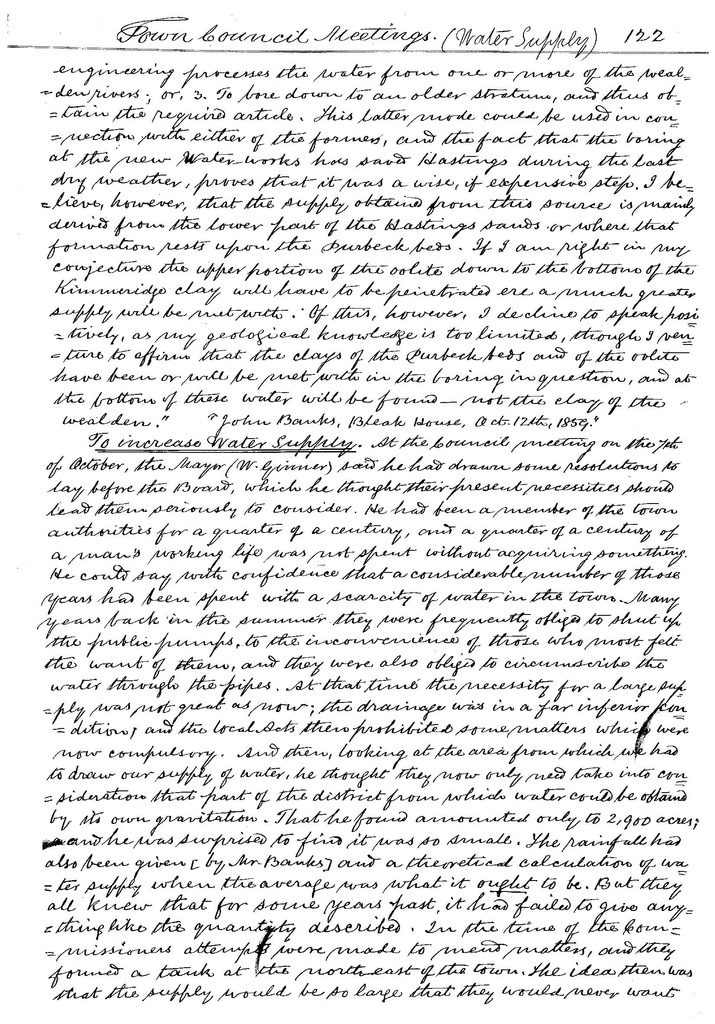 Town Council Meetings. (Water Supply) 122
engineering processes the water from one or more of the weal-
=den rivers; or, 3. To bore down to an older stratum, and thus ob-
=tain the required article. This latter mode could be used in con-
=nection with either of the formers, and the fact that the boring
at the new Water-works has saved Hastings during the last
dry weather, proves that it was a wise, if expensive step. I be-
=lieve, however, that the supply obtained from this source is mainly
derived from the lower part of the Hastings sands or where that
formation rests upon the Purbeck beds. If I am right in my
conjecture the upper portion of the oolite down to the bottom of the
Kimmeridge clay will have to be penetrated ere a much greater
supply will be met with. Of this, however, I decline to speak posi
=tively, as my geological knowledge is too limited, though I ven=
=ture to affirm that the clays of the Purbeck beds and of the oolite
have been or will be met with in the boring in question, and at
the bottom of these water will be found — not the clay of the
wealden." "John Banks, Bleak House, Oct. 12th, 1859."
To increase Water Supply. At the Council meeting on the 7th
of October, the Mayor (W. Ginner) said he had drawn some resolutions to
lay before the Board, which he thought their present necessities should
lead them seriously to consider. He had been a member of the town
authorities for a quarter of a century, and a quarter of a century of
a man's working life was not spent without acquiring something.
He could say with confidence that a considerable number of those
years had been spent with a scarcity of water in the town. Many
years back in the summer they were frequently obliged to shut up
the public pumps, to the inconvenience of those who most felt
the want of them, and they were also obliged to circumscribe the
water through the pipes. At that time the necessity for a large sup-
=ply was not great as now; the drainage was in a far inferior con
=dition; and the local Acts then prohibited some matters which were
now compulsory. And then, looking at the area from which we had
to draw our supply of water, he thought they now only need take into con-
=sideration that part of the district from which water could be obtained
by its own gravitation. That he found amounted only to 2,900 acres;
and he was surprised to find it was so small. The rainfall had
also been given [by Mr. Banks] and a theoretical calculation of wa-
=ter supply when the average was what it ought to be. But they
all knew that for some years past, it had failed to give any-
=thing like the quantity described. In the time of the Com-
=missioners attempts were made to mend matters, and they
formed a tank at the north east of the town. The idea then was
that the supply would be so large that they would never want